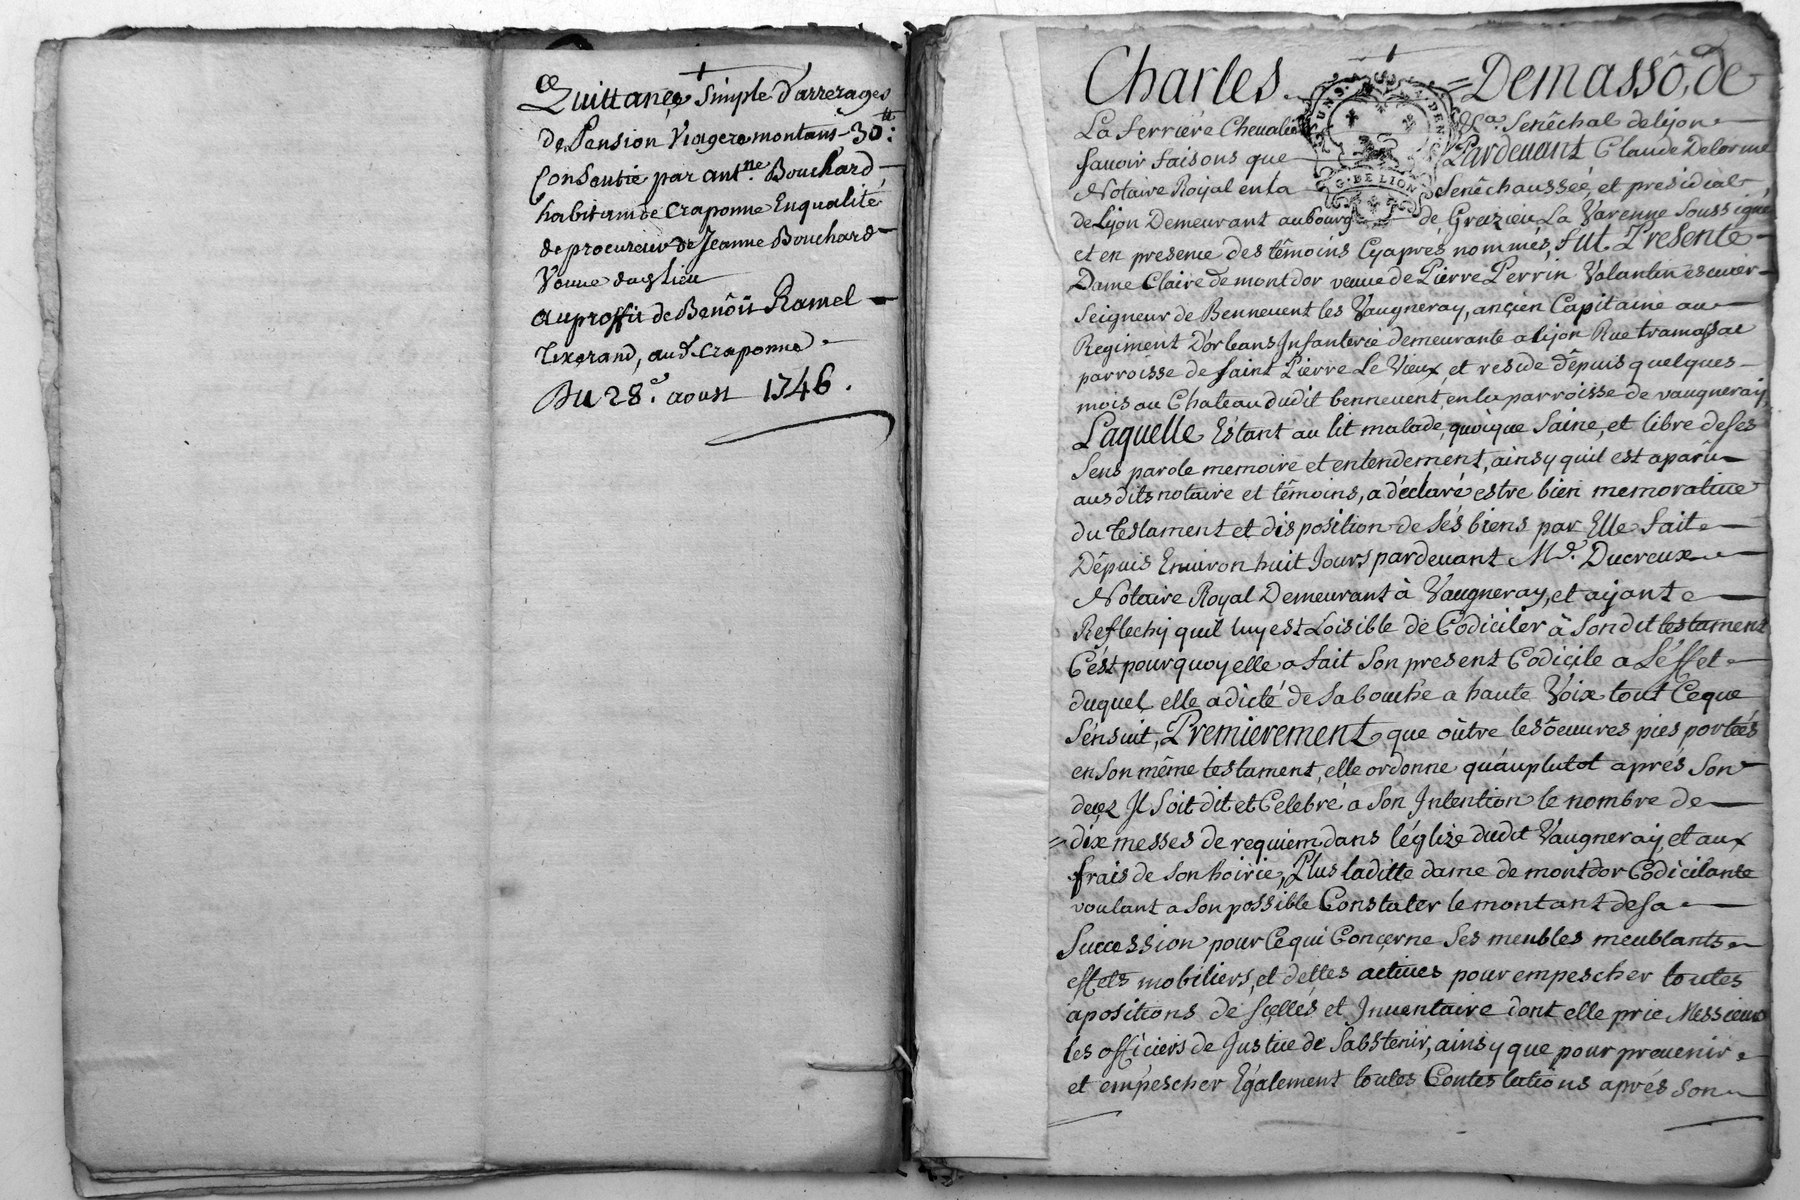 Quittance simple d'arrerages
de Pension Viagere montans 30ᵗᵗ:
Consentie par antⁿᵉ. Bouchard
habitant de Craponne Enqualité
de procureur de Jeanne Bouchard
Veuve dudᵗ lieu
auproffit de Benôit Ramel
Tixerand, audᵗ Craponne
Du 28ᵉ. aoust 1746.
Charles Demassô, de
La Ferriére Chevalier Senêchal de lyon
Savoir faisons que Pardevant Claude Delorme
Notaire Royal en la Senêchaussée, et presidial
G. DE LION
de Lyon Demeurant aubourg de Greizieu La Varenne Soussigné
et en presence des têmoins Cyaprés nommés, fut Presente
Dame Claire de montdor veuve de Pierre Perrin Valantin escuier
Seigneur de Bennevent les Vaugneray, ançien Capitaine au
Regiment D'orleans Infanterie demeurante a lyon Rue tramassac
parroisse de saint Pierre Le Vieux, et reside dêpuis quelques
mois au Chateau dudit bennevent, en la parroisse de vaugneray,
Laquelle Estant au lit malade, quoique Saine, et libre deses
Sens parole memoire et entendement, ainsy quil est aparû
ausdits notaire et têmoins, a déclaré estre bien memorative
du testament et disposition de sés biens par Elle fait
Dêpuis Environ huit Jours pardevant Mᵉ. Ducreux
Notaire Royal Demeurant à Vaugneray, et ayant
Reflechy quil luy est Loisible de Codiciler à Sondit testament
C'est pourquoy elle a fait Son present Codiçile a L'éffet
duquel elle adicté de Sa bouche a haute Voix tout Ceque
S'énsuit, Premierement que oûtre les oeuvres pies portées
en Son même testament, elle ordonne qu'auplutot aprés Son
deçez Il Soit dit et Celebré a Son Intention le nombre de
dix messes de requiem dans l'église dudit Vaugneray, et aux
frais de Son hoirie, Plus laditte dame de montdor Codicilante
voulant a Son possible Constater le montant desa
Succession pour Cequi Conçerne Ses meubles meublants
effets mobiliers, et dettes actives pour empescher toutes
apositions de Sçellés et Inventaire dont elle prie Messieurs
les officiers de Justice de Sabstenir, ainsy que pour prevenir
et empescher Egalement toutes Contestations aprés Son